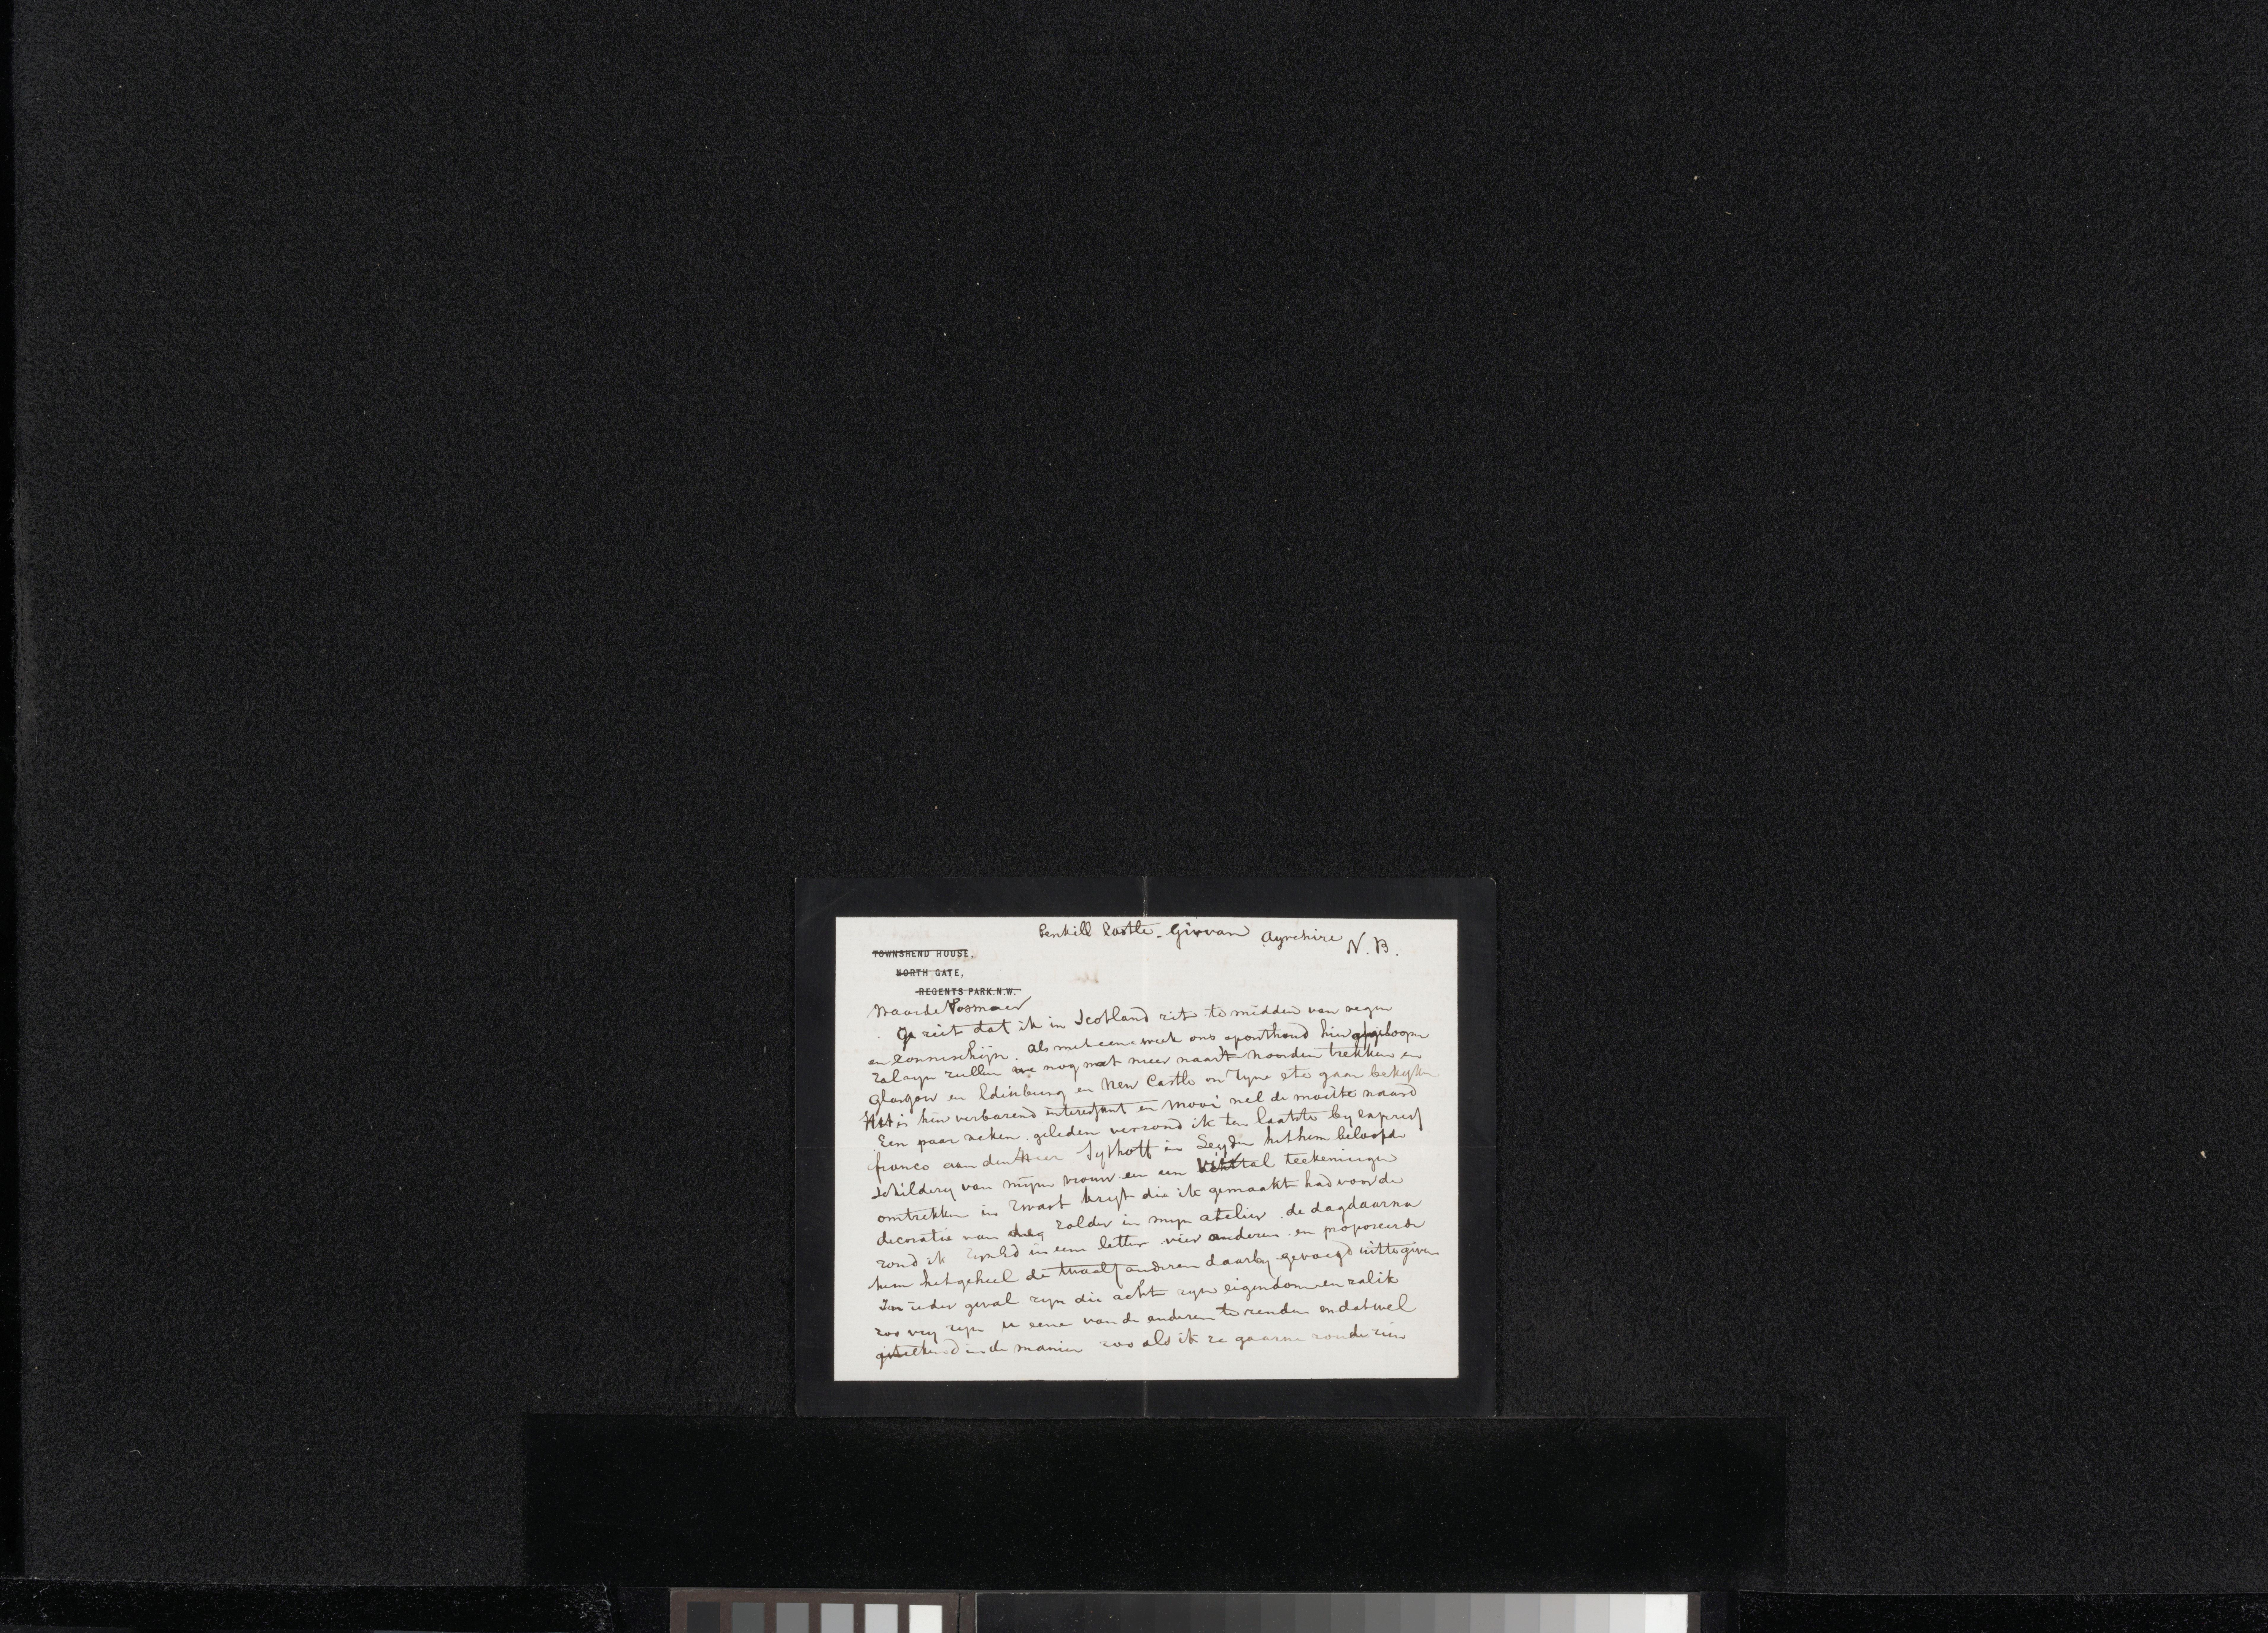 Penkill Castle - Girvan Ayrshire N.B.
TOWNSHEND HOUSE,
NORTH GATE,
REGENTS PARK.N.W.
Waarde Vosmaer
Ge ziet dat ik in Scotland zit te midden van regen
en zonneschijn. Als met eene week ons oponthoud hier afgeloopen
zal zyn zullen we nog wat meer naar 't noorden trekken en
Glasgow en Edinburg en New Castle on Tyne etc gaan bekyken
Het is hier verbazend interessant en mooi wel de moeite waard
Een paar weken geleden verzond ik ten laatste by express
franco aan den Heer Sythoff in Leyden het hem beloofde
schildery van mijne vrouw en een viertal teekeningen
omtrekken in zwart kryt die ik gemaakt had voor de
decoratie van de zolder in myn atelier. de dag daarna
zond ik in een letter vier anderen en proposeerde
hem het geheel de twaalf anderen daarby gevoegd uit te geven
In ieder geval zyn die acht zyn eigendom en zal ik
zoo vry zyn u eene van de anderen te zenden en dat wel
geteekend in de manier zoo als ik ze gaarne zoude zien